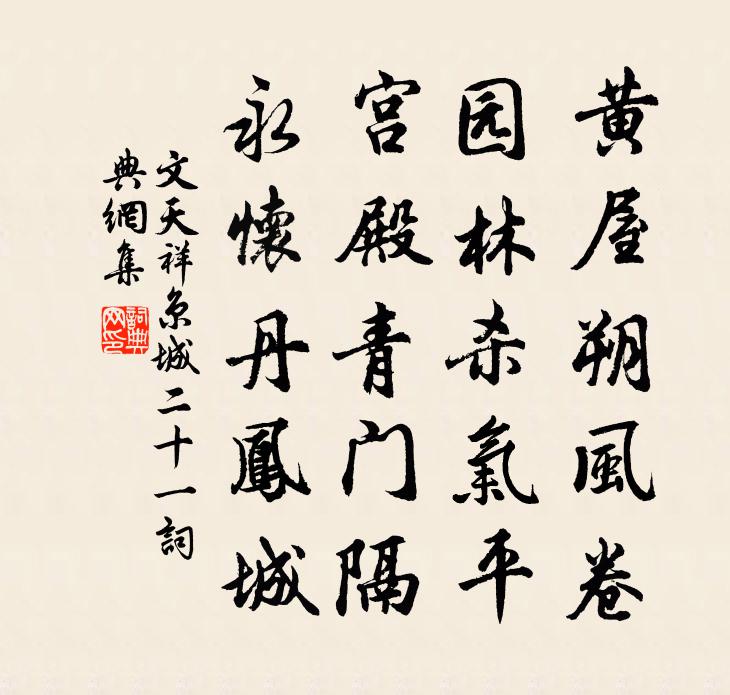 黄屋朔風卷
园林杀氣平
宫殿青门隔
永懷丹鳳城
文天祥京城二十一詞
典網集
詞典网印